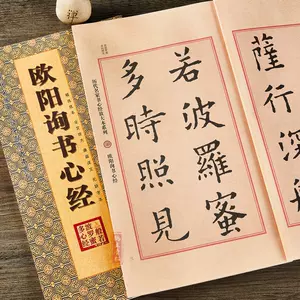 欧阳询书心经
薩行深
若波羅蜜
多時照見
历代名家书心经放大本系列
欧阳询心经